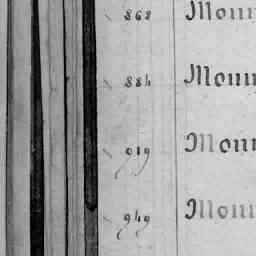 868 Monn
884 Monn
919 Monn
949 Monn